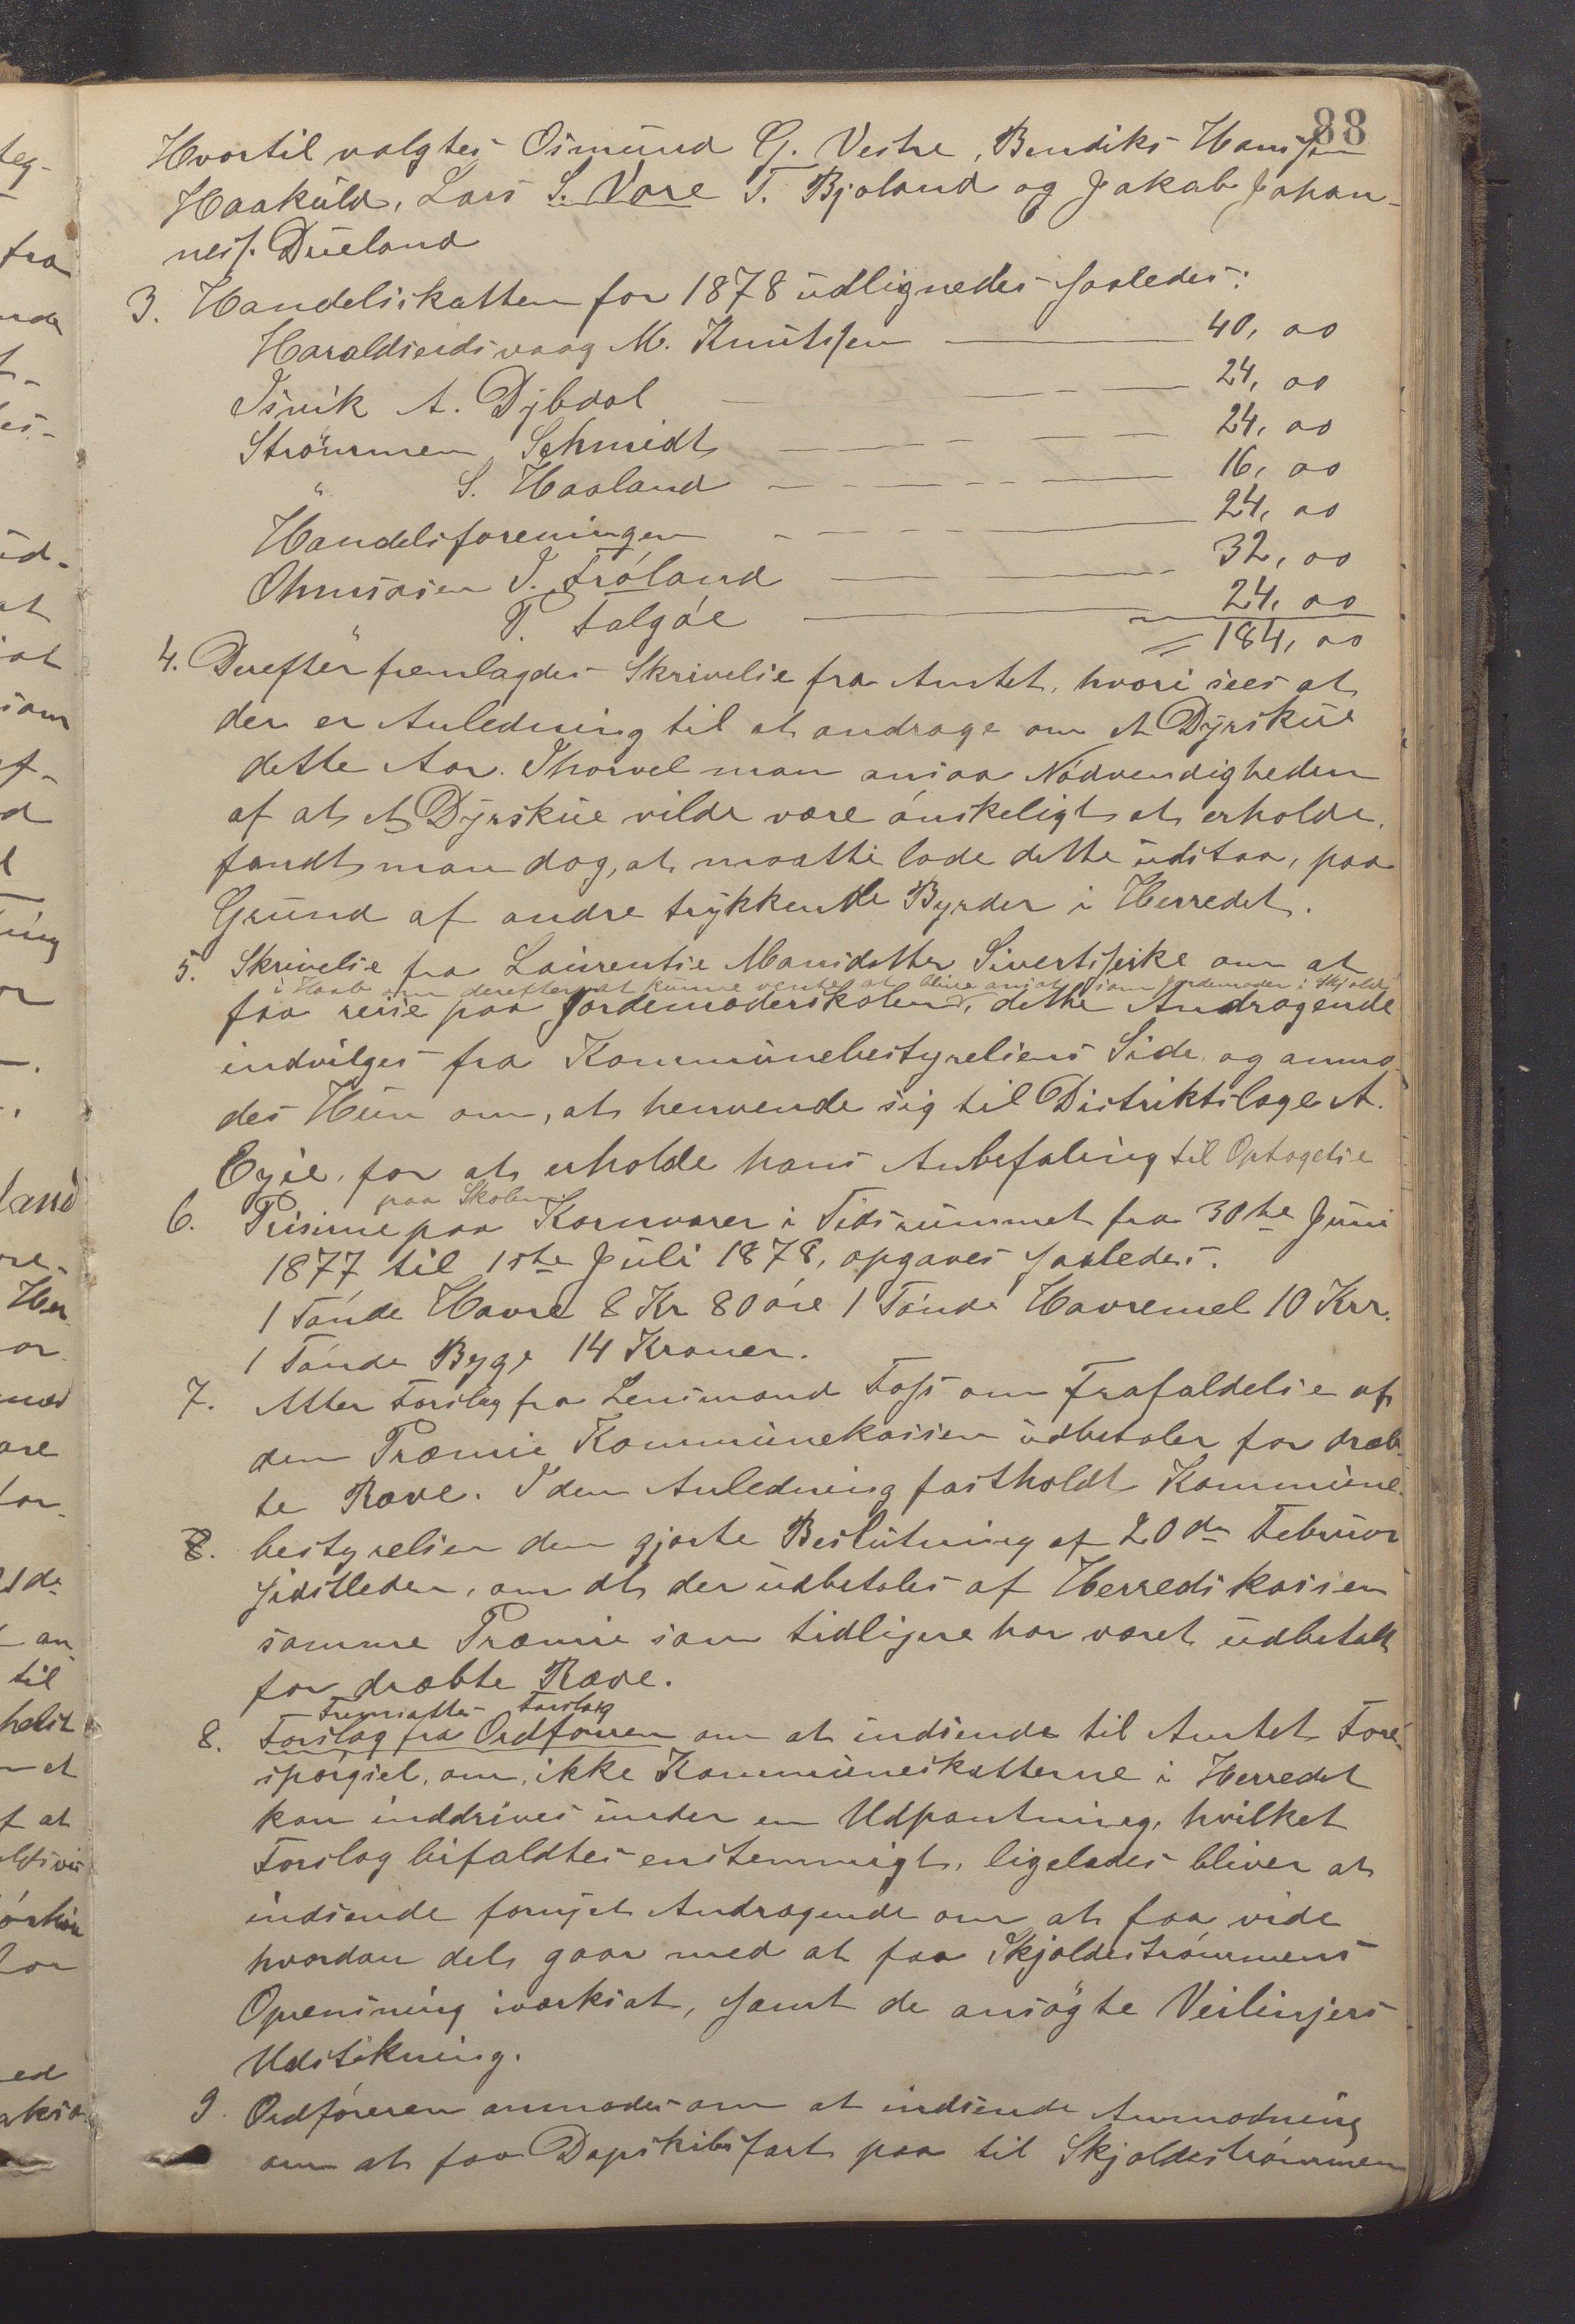 88
Hvortil valgtes Osmund G. Vestre, Bendiks Hanssen
Haakuld, Lars S. Vare T. Bjoland og Jakob Johan-
ness. Dueland
3. Handelsskatten for 1878 udlignedes saaledes:
Haraldseidsvaag M. Knutssen 40,00
Isvik A. Dybdal 24,00
Strömmen Schmidt 24,00
" S. Haaland 16,00
Handelsforeningen 24,00
Ohmsosen I. Fröland 32,00
" P. Talgöe 24,00
= 184,00
4. Derefter fremlagdes Skrivelse fra Amtet, hvori sees at
der er Anledning til at andrage om et Dyrskue
dette Aar. Ihvorvel man ansaa Nödvendigheden
af at et Dyrskue vilde være önskeligt at erholde,
fandt man dog, at maatte lade dette udstaa, paa
Grund af andre trykkende Byrder i Herredet.
5. Skrivelse fra Laurentse Mansdatter Sivertsjerke om at
i Haab om derefter at kunne vente at blive ansat som Jordemoder i Skjold
faa reise paa Jordemoderskolen, dette Andragende
indvilges fra Kommunebestyrelsens Side, og anmo-
des Hun om, at henvende sig til Distriktslæge A.
Eyie, for at erholde hans Anbefaling til Optagelse
paa Skolen.
6. Priserne paa Kornvarer i Tidsrummet fra 30te Juni
1877 til 1ste Juli 1878, opgaves saaledes.
1 Tönde Havre 8 Kr 80 öre 1 Tönde Havremel 10 Krr.
1 Tönde Byg 14 Kroner.
7. Atter Forslag fra Lensmand Foss om Frafaldelse af
den Præmie Kommunekassen udbetaler for dræb-
te Ræve. I den Anledning fastholdt Kommune-
8. bestyrelsen den gjorte Beslutning af 20de Februar
sidstleden, om at der udbetales af Herredskassen
samme Præmie som tidligere har været udbetalt
for dræbte Ræve.
Fremsattes Forslag
8. Forslag fra Ordföreren om at indsende til Amtet Fore-
spörgsel, om, ikke Kommuneskatterne i Herredet
kan inddrives under en Udpantning, hvilket
Forslag bifaldtes enstemmigt, ligeledes bliver at
indsende fornyet Andragende om at faa vide
hvordan det gaar med at faa Skjoldeströmmens
Oprensning iværksat, samt de ansögte Veilinjers
Udstikning.
9. Ordföreren anmodes om at indsende Anmodning
om at faa Dapskibsfart paa til Skjoldeströmmen